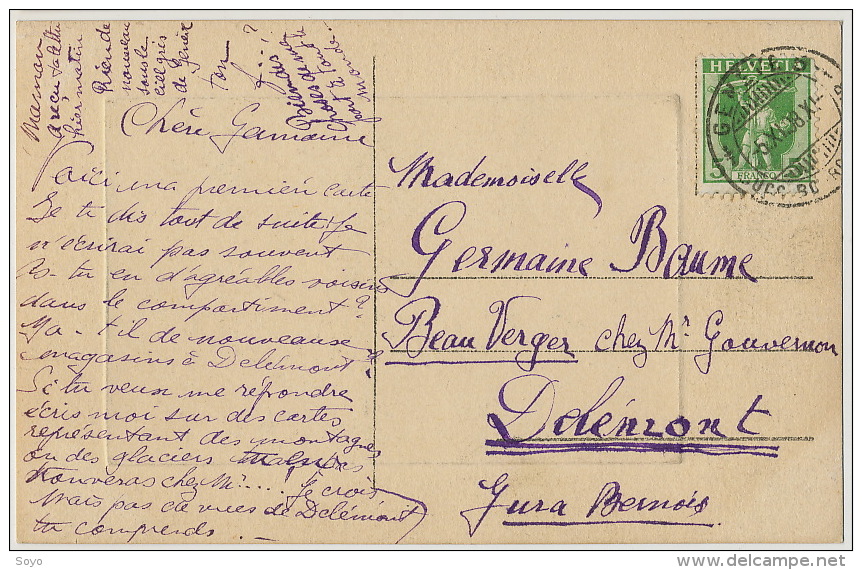 Maman
a reçu ta lettre
hier matin
Rien de
nouveau
sous le
ciel gris
de Genève
ton
G...!
Bien des
choses de
tout le
monde
Chère Germaine
Voici ma première carte
Je te dis tout de suite : je
n'écrirai pas souvent
As-tu eu d'agréables voisins
dans le compartiment ?
Ya-t-il de nouveaux
magasins à Delémont ?
Si tu veux me répondre
écris moi sur des cartes
représentant des montagnes
ou des glaciers
trouveras chez Mr...! Je crois
Mais pas de vues de Delémont
tu comprends.
Mademoiselle
Germaine Baume
Beau Verger chez Mr Gouvernon
Delémont
Jura Bernois
HELVETIA
5
FRANCO
Soyo
delcampe.net